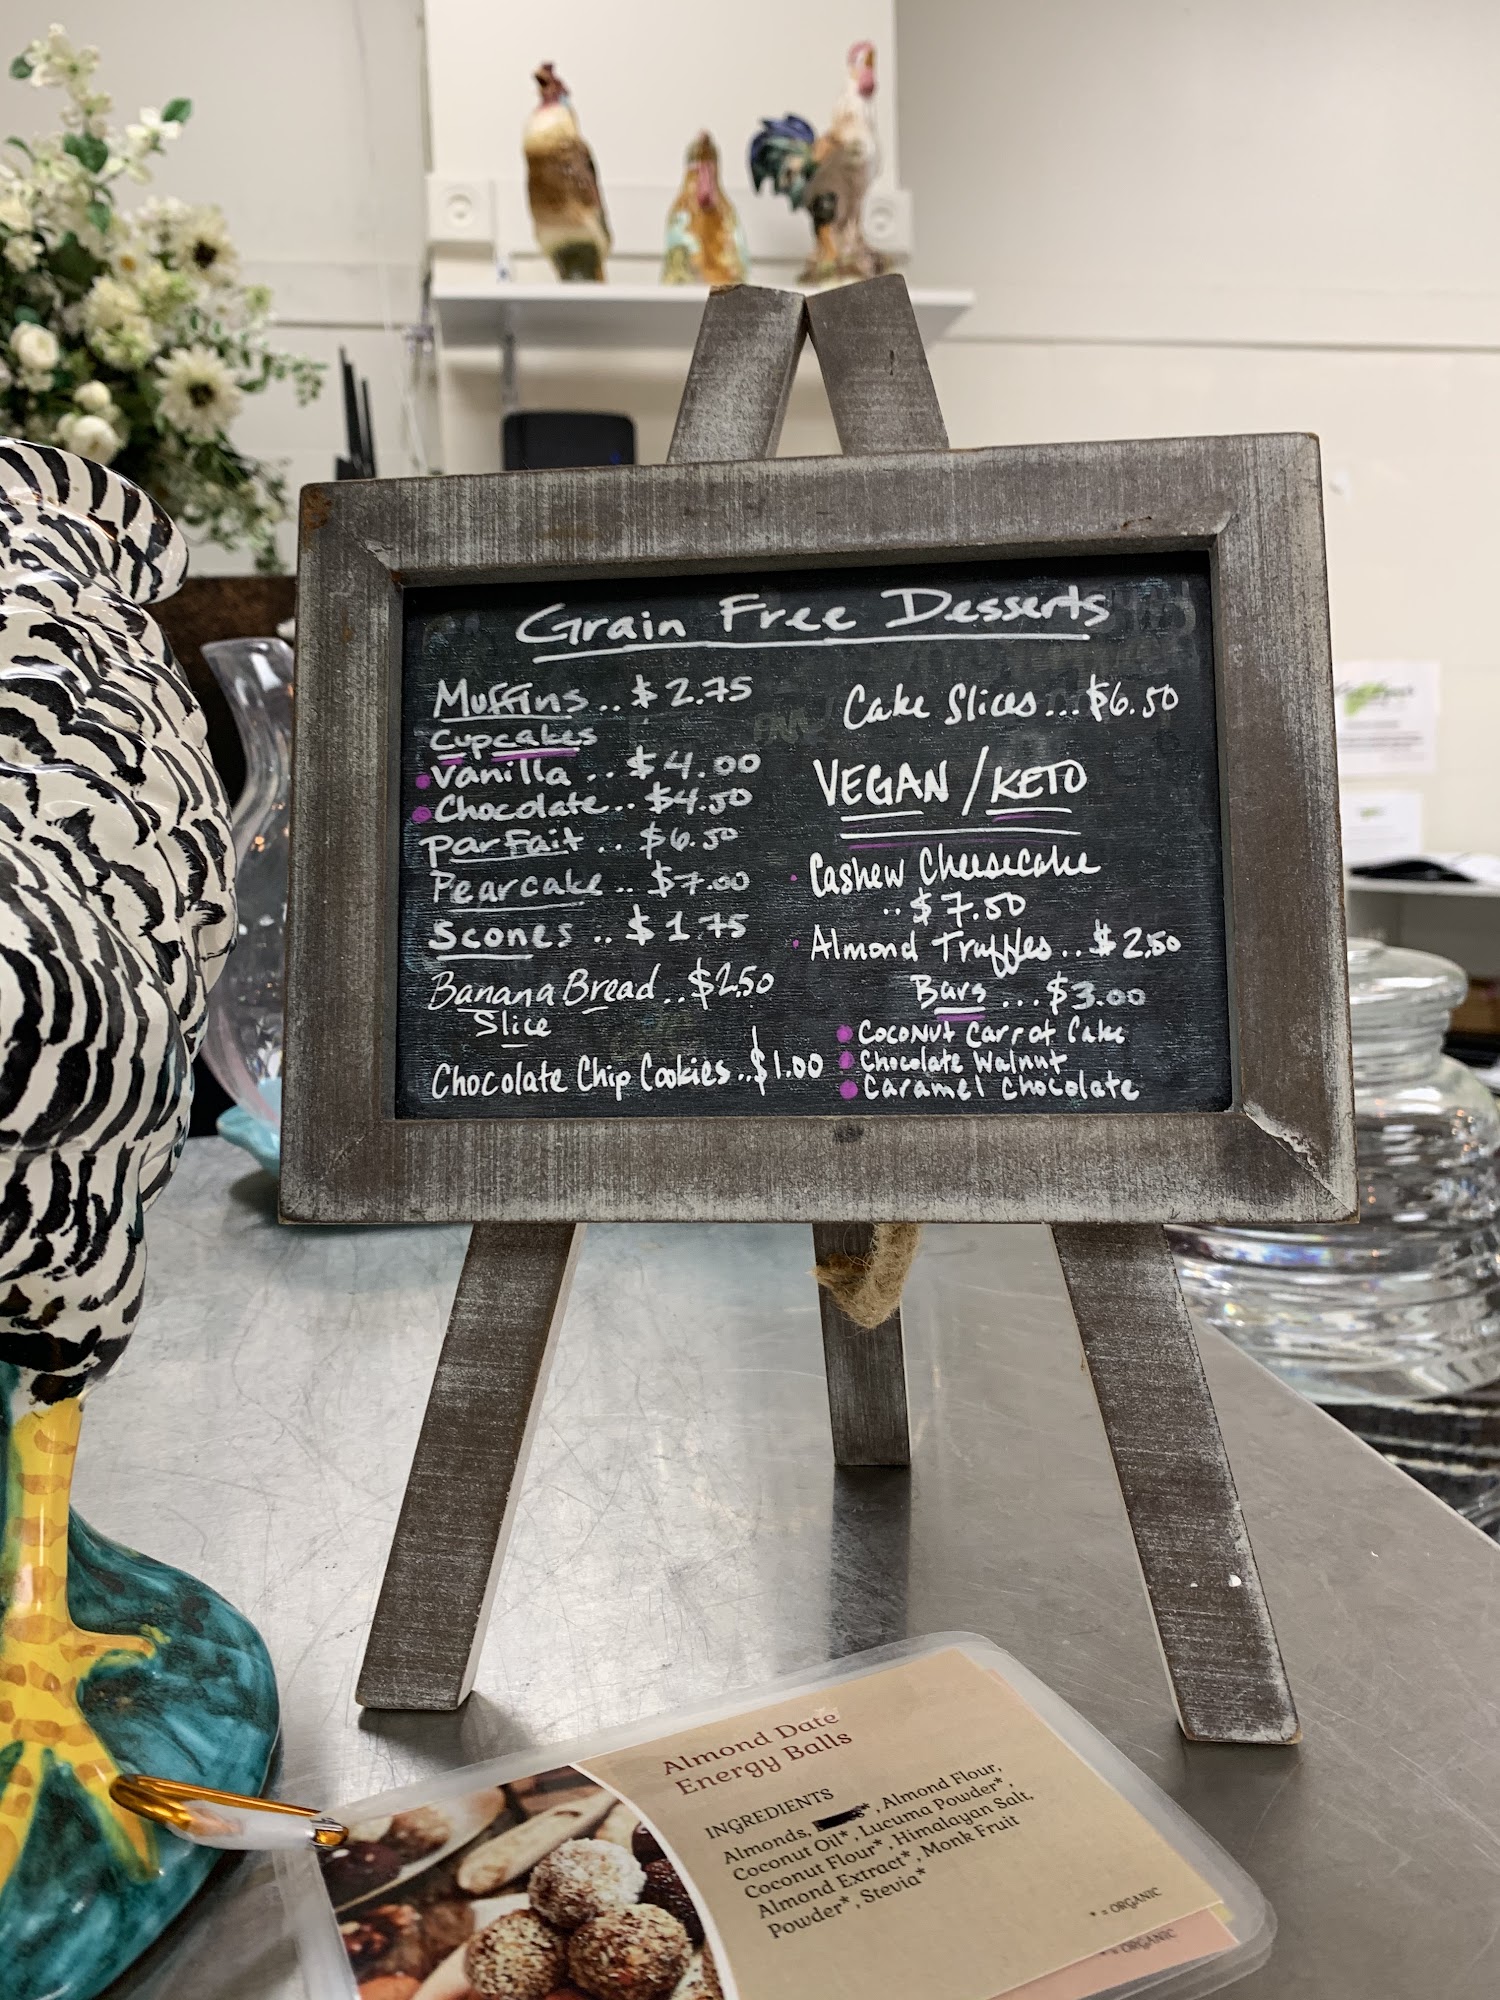 Grain Free Desserts
Muffins .. $2.75
Cupcakes
Vanilla .. $4.00
Chocolate .. $4.50
Parfait .. $6.50
Pearcake .. $7.00
Scones .. $1.75
Banana Bread .. $2.50
Slice
Chocolate Chip Cookies .. $1.00
Cake Slices ... $6.50
VEGAN / KETO
Cashew Cheesecake
.. $7.50
Almond Truffles .. $2.50
Bars ... $3.00
Coconut Carrot Cake
Chocolate Walnut
Caramel Chocolate
Almond Date
Energy Balls
INGREDIENTS
Almonds, * , Almond Flour,
Coconut Oil* , Lucuma Powder* ,
Coconut Flour* , Himalayan Salt,
Almond Extract* , Monk Fruit
Powder* , Stevia*
* = ORGANIC
* = ORGANIC